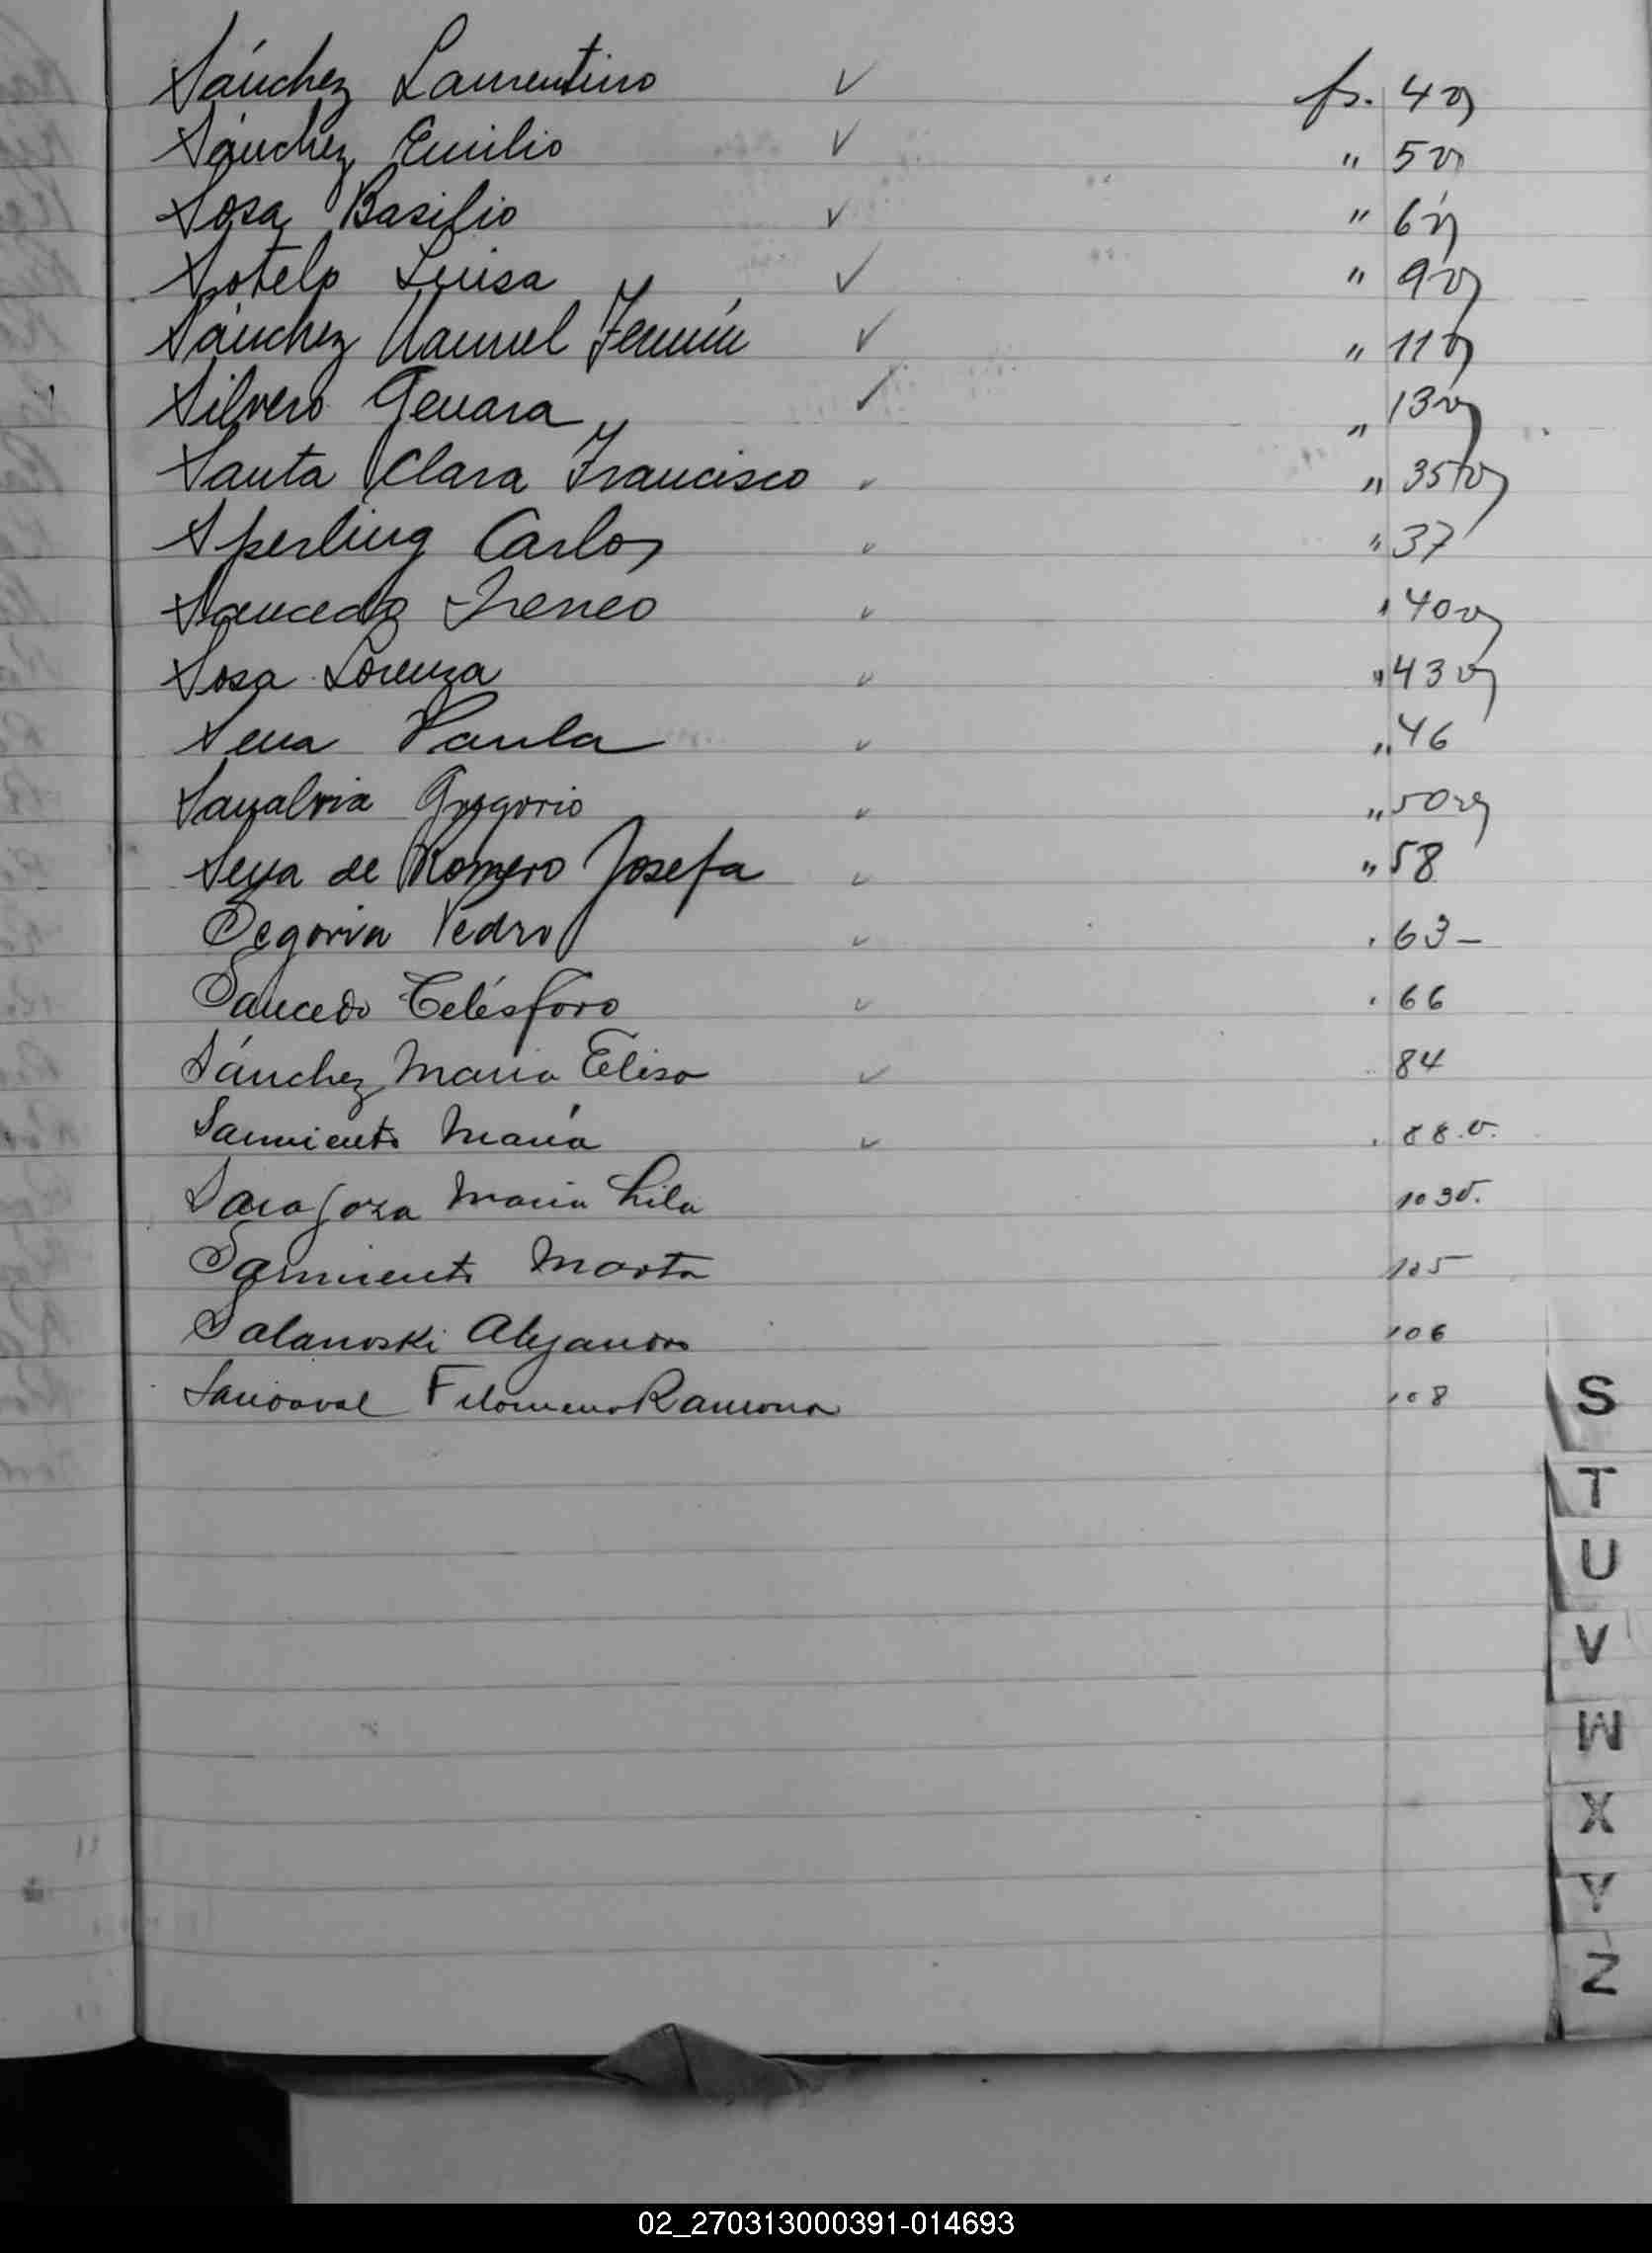 Sánchez Laurentino fs. 4 v
Sánchez Emilio " 5 v
Sosa Basilio " 6 v
Sotelo Luisa " 9 v
Sánchez Manuel Fermín " 11 v
Silvero Genara " 13 v
Santa Clara Francisco " 35 v
Sperling Carlos " 37
Saucedo Ireneo " 40 v
Sosa Lorenza " 43 v
Sena Paula " 46
Sanabria Gregorio " 50 v
Sena de Romero Josefa " 58
Segovia Pedro " 63 –
Saucedo Telésforo " 66
Sánchez Maria Elisa 84
Sarmiento María " 88.v.
Saragoza Maria Lila 103v.
Sarmiento Marta 105
Salanoski Alejandro 106
Sandoval Filomena Ramona 108
S
T
U
V
W
X
Y
Z
02_270313000391-014693